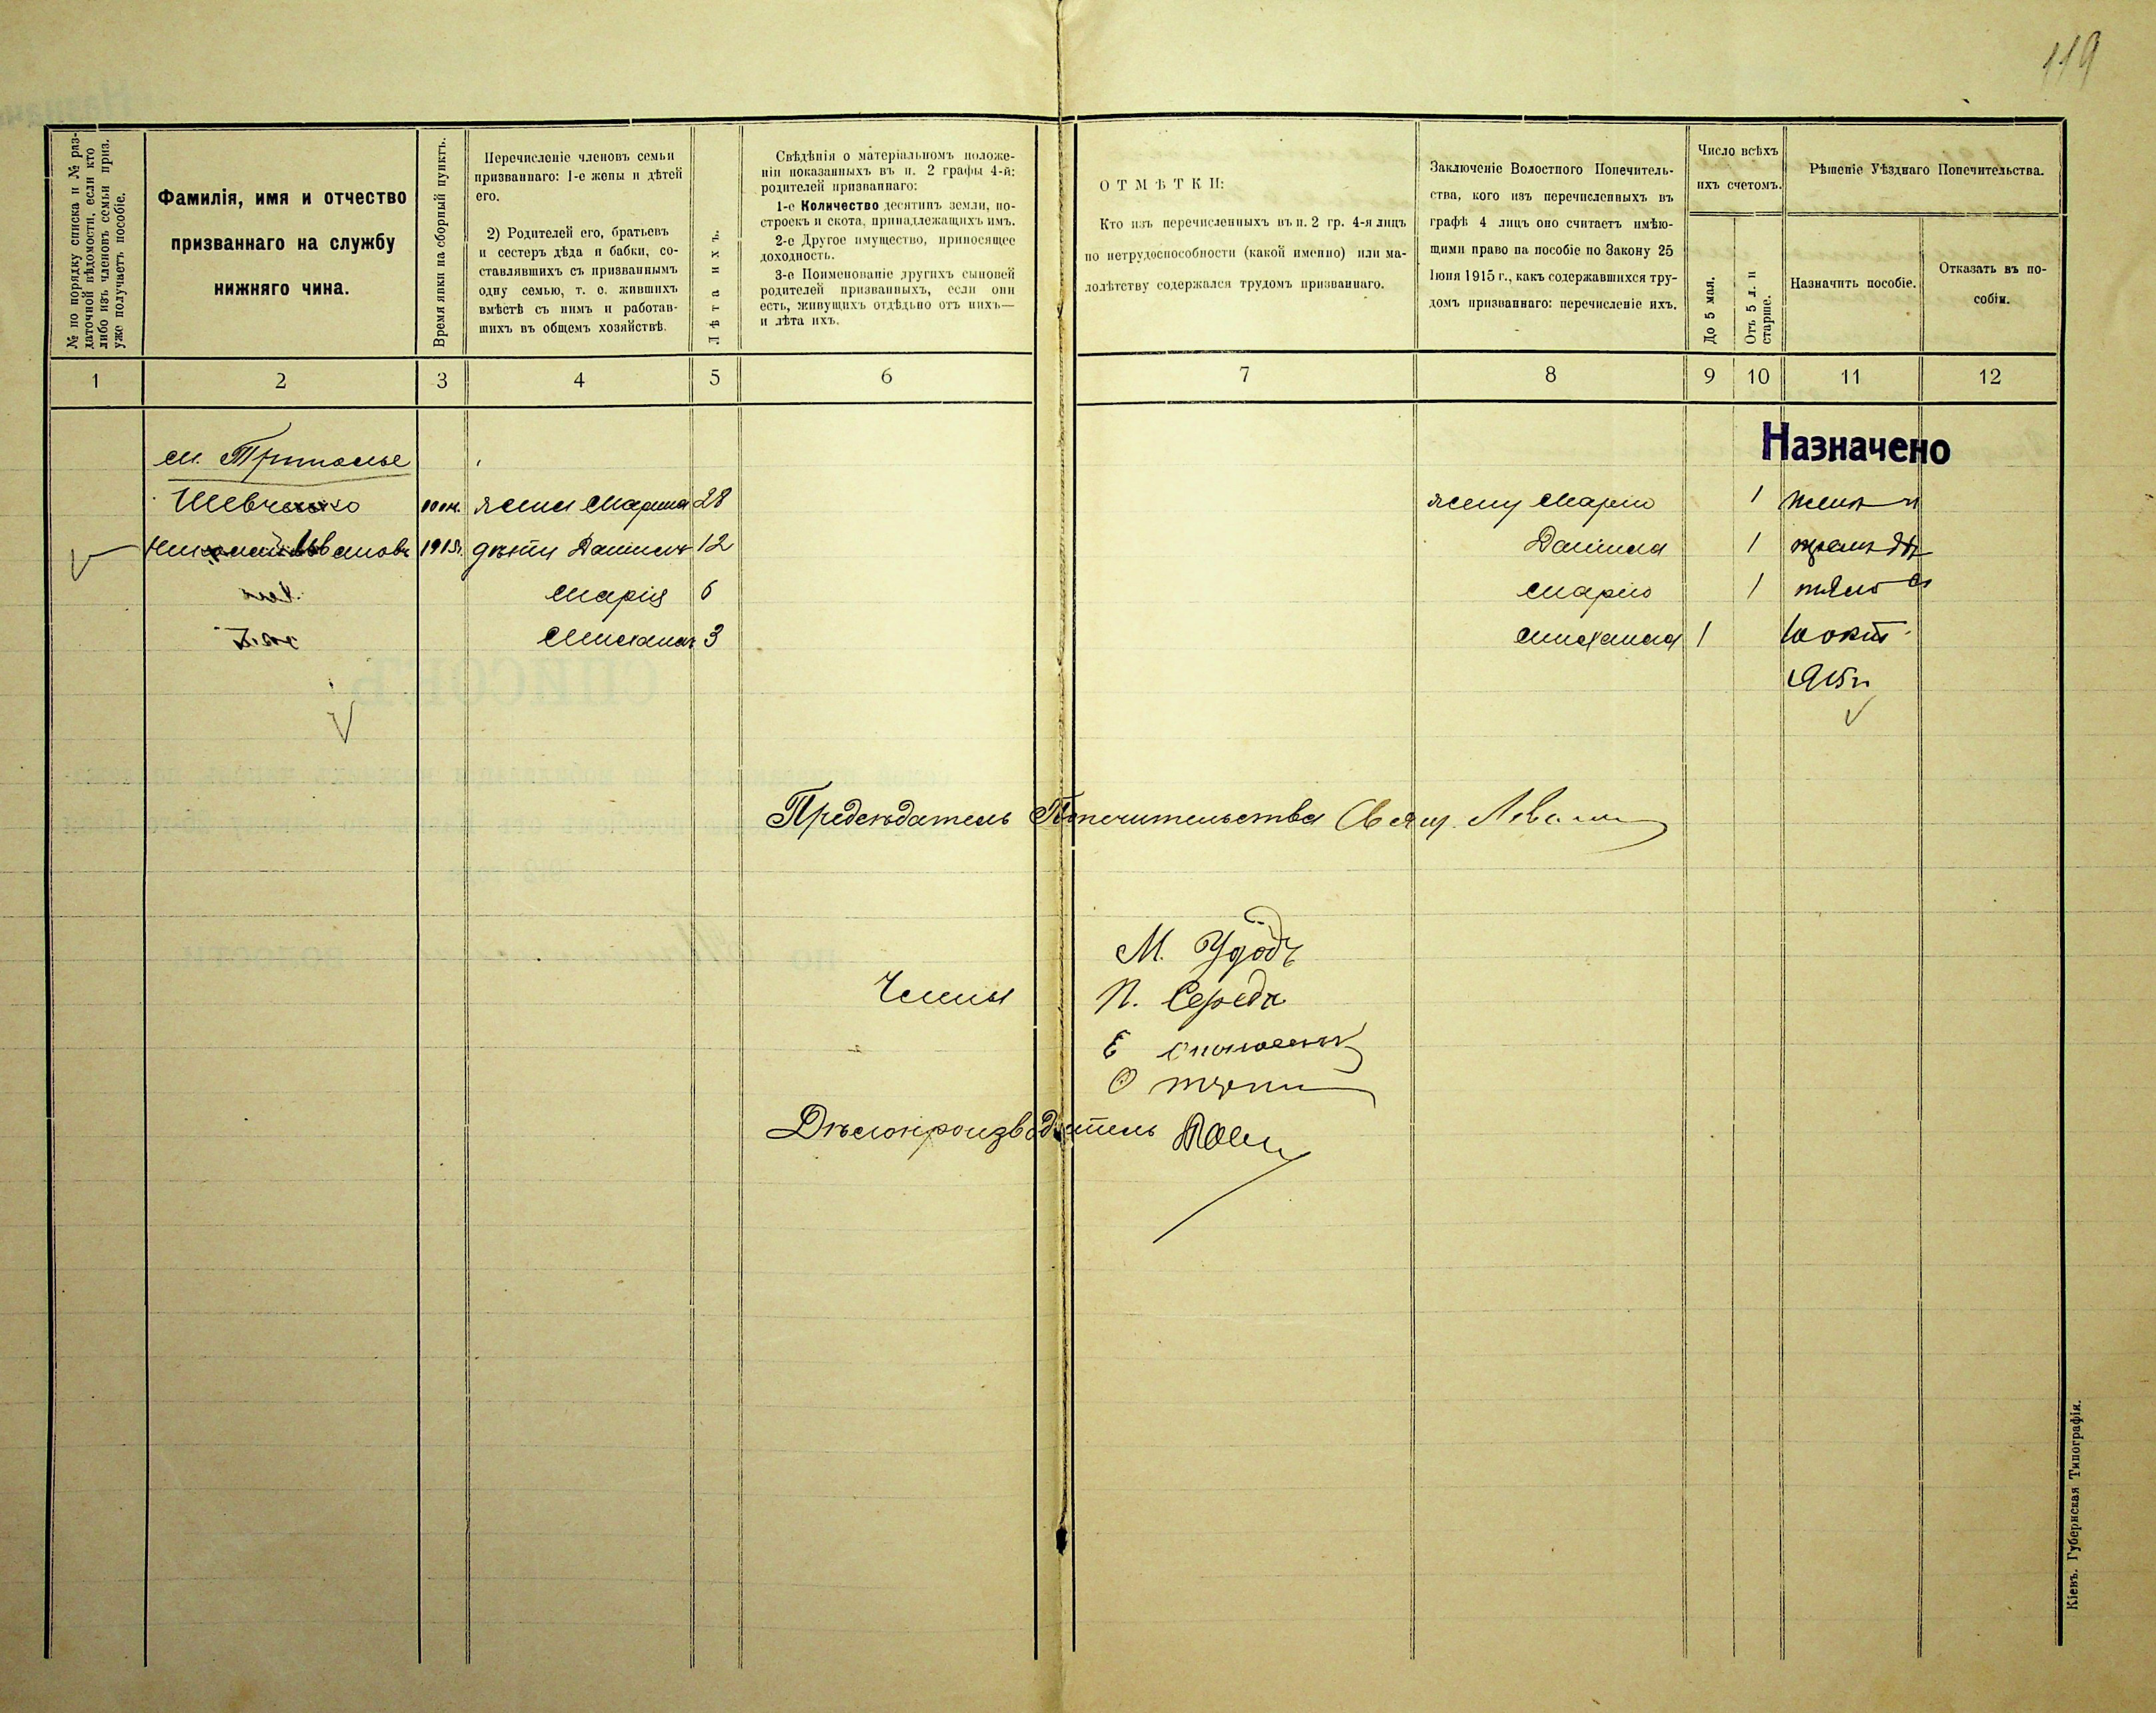 119
№ по порядку списка и № раз-
даточной вѣдомости, если кто
либо изъ членовъ семьи приз.
уже получаетъ пособіе.
Фамилія, имя и отчество
призваннаго на службу
нижняго чина.
Время явки на сборный пунктъ.
Перечисленіе членовъ семьи
призваннаго: 1-е жены и дѣтей
его.
2) Родителей его, братьевъ
и сестеръ дѣда и бабки, со-
ставлявшихъ съ призваннымъ
одну семью, т. е. жившихъ
вмѣстѣ съ нимъ и работав-
шихъ въ общемъ хозяйствѣ.
Лѣта ихъ.
Свѣдѣнія о матеріальномъ положе-
ніи показанныхъ въ п. 2 графы 4-й:
родителей призваннаго:
1-е Количество десятинъ земли, по-
строекъ и скота, принадлежащихъ имъ.
2-е Другое имущество, приносящее
доходность.
3-е Поименованіе другихъ сыновей
родителей призванныхъ, если они
есть, живущихъ отдѣльно отъ нихъ—
и лѣта ихъ.
ОТМѢТКИ:
Кто изъ перечисленныхъ въ п. 2 гр. 4-я лицъ
по нетрудоспособности (какой именно) или ма-
лолѣтству содержался трудомъ призваннаго.
Заключеніе Волостного Попечитель-
ства, кого изъ перечисленныхъ въ
графѣ 4 лицъ оно считаетъ имѣю-
щими право на пособіе по Закону 25
Іюня 1915 г., какъ содержавшихся тру-
домъ призваннаго: перечисленіе ихъ.
Число всѣхъ
ихъ счетомъ.
До 5 мая.
Отъ 5 л. и
старше.
Рѣшеніе Уѣзднаго Попечительства.
Назначить пособіе.
Отказать въ по-
собіи.
1 2 3 4 5 6 7 8 9 10 11 12
Назначено
м. Триполье
Шевченко жена Марина 28 жену Марію 1 жена и
Николай Ивановъ 1915г. дѣти Даніилъ 12 Даніила 1 тремъ дѣ
Марія 6 Марію 1 тямъ съ
Михаилъ 3 Михаила 1 10 окт.
1915 г.
Предсѣдатель Попечительства Свящ.
М. Удодъ
Члены П. Середа
Е
О
Дѣлопроизводитель
Кіевъ. Губернская Типографія.